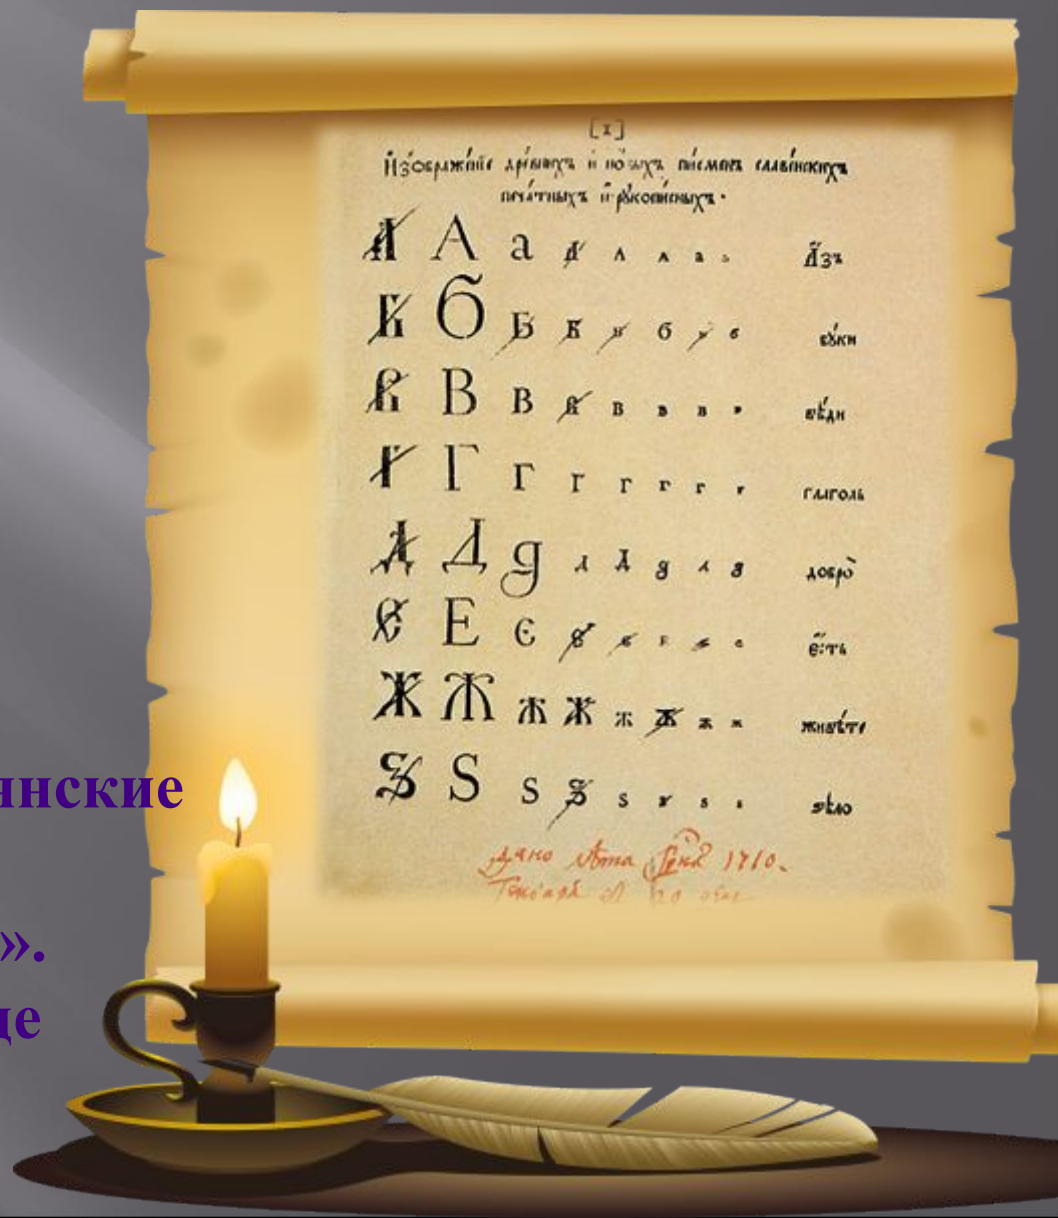 [1]
Изображенїе древнихъ и новыхъ писменъ славенскихъ
печатныхъ и рукописныхъ.
А А а а А А а а Азъ
Б Б Б Б Б б Б б буки
В В В В В В В В вѣди
Г Г Г Г Г Г Г Г глаголь
Д Д д д Д д д д добро
Е Е є Е Е Е Е є есть
Ж Ж Ж Ж Ж Ж Ж Ж живѣте
Ѕ Ѕ Ѕ Ѕ Ѕ Ѕ Ѕ Ѕ ѕѣло
Дано лѣта 1710.
нские
».
це